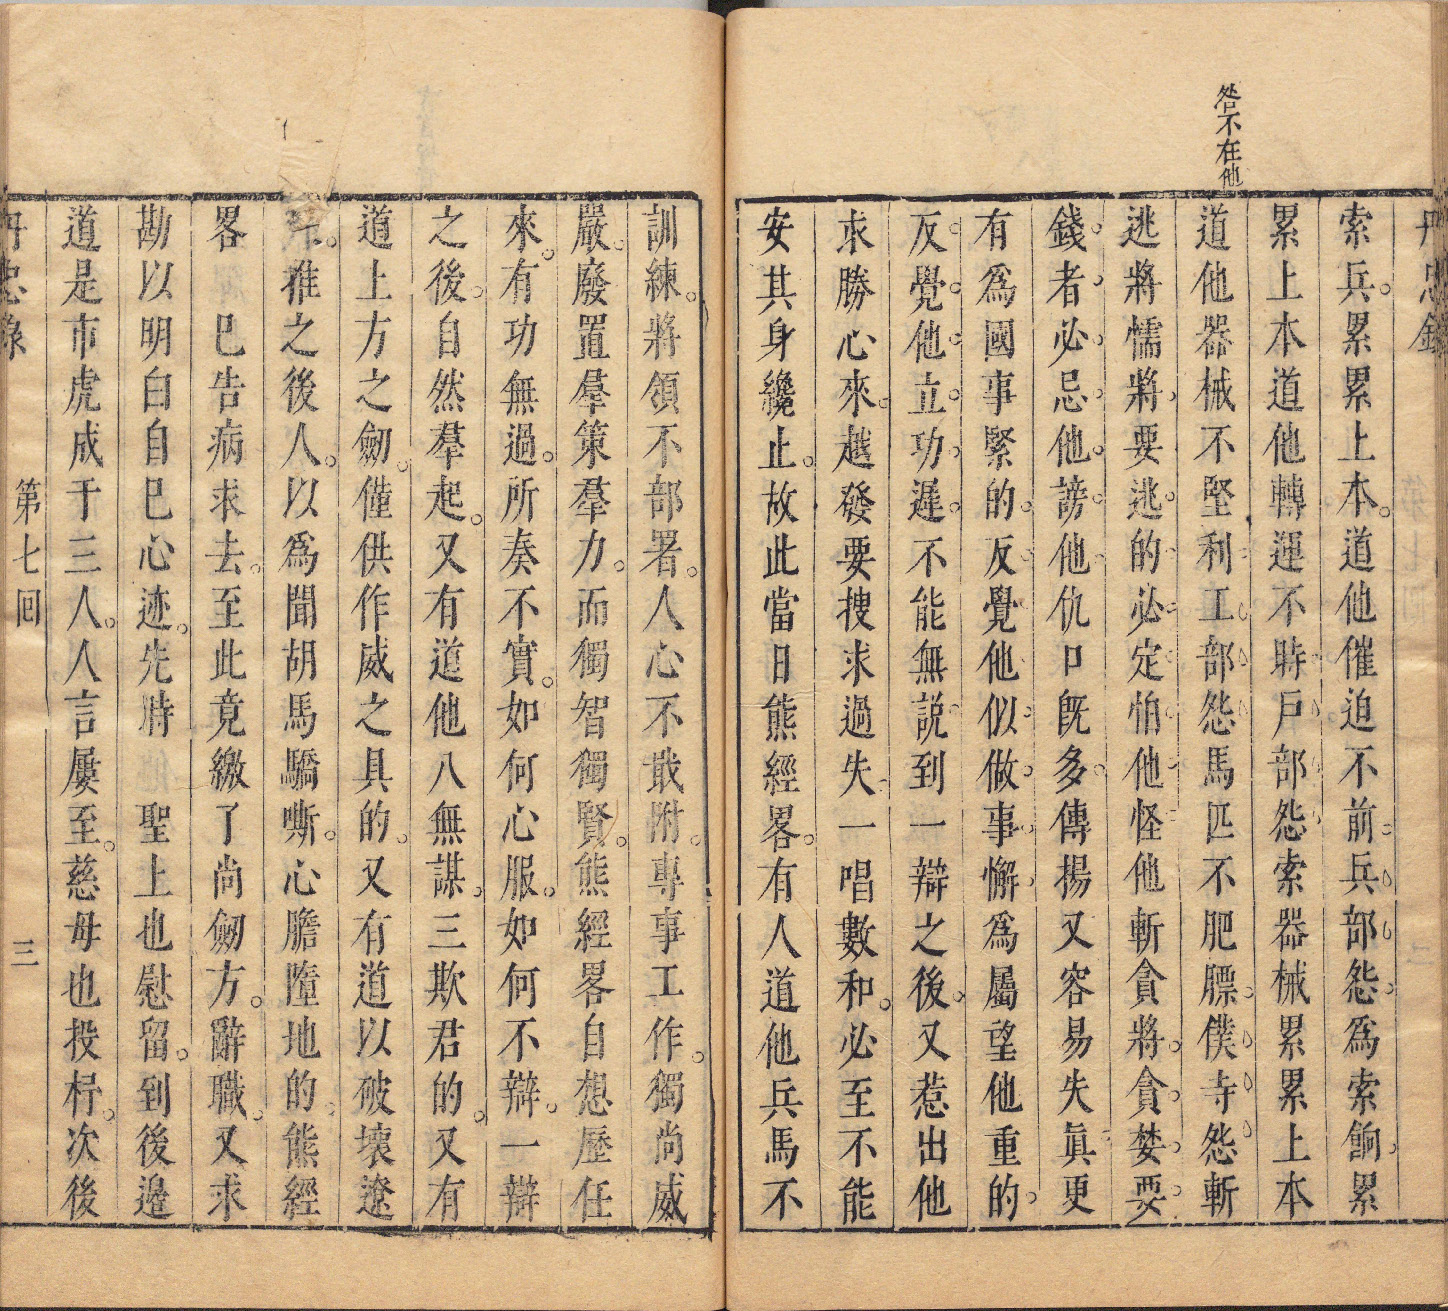 丹忠錄
咎不在他
索兵累累上本道他催迫不前兵部怨爲索餉累
累上本道他轉運不時戶部怨索器械累累上本
道他器械不堅利工部怨馬匹不肥膘僕寺怨斬
逃將懦將要逃的必定怕他怪他斬貪將貪婪要
錢者必忌他謗他仇口旣多傳揚又容易失眞更
有爲國事緊的反覺他似做事懈爲屬望他重的
反覺他立功遲不能無説到一辯之後又惹出他
求勝心來越發要搜求過失一唱數和必至不能
安其身纔止故此當日熊經畧有人道他兵馬不
訓練將領不部署人心不戢附專事工作獨尚威
嚴廢置羣策羣力而獨智獨賢熊經畧自想歷任
來有功無過所奏不實如何心服如何不辯一辯
之後自然羣起又有道他八無謀三欺君的又有
道上方之劒僅供作威之具的又有道以破壞遼
推之後人以爲聞胡馬驕嘶心膽墮地的熊經
畧 已告病求去至此竟繳了尚劒方辭職又求
勘以明白自已心迹先時 聖上也慰留到後邊
道是市虎成于三人人言屢至慈母也投杼次後
丹忠錄 第七回 三